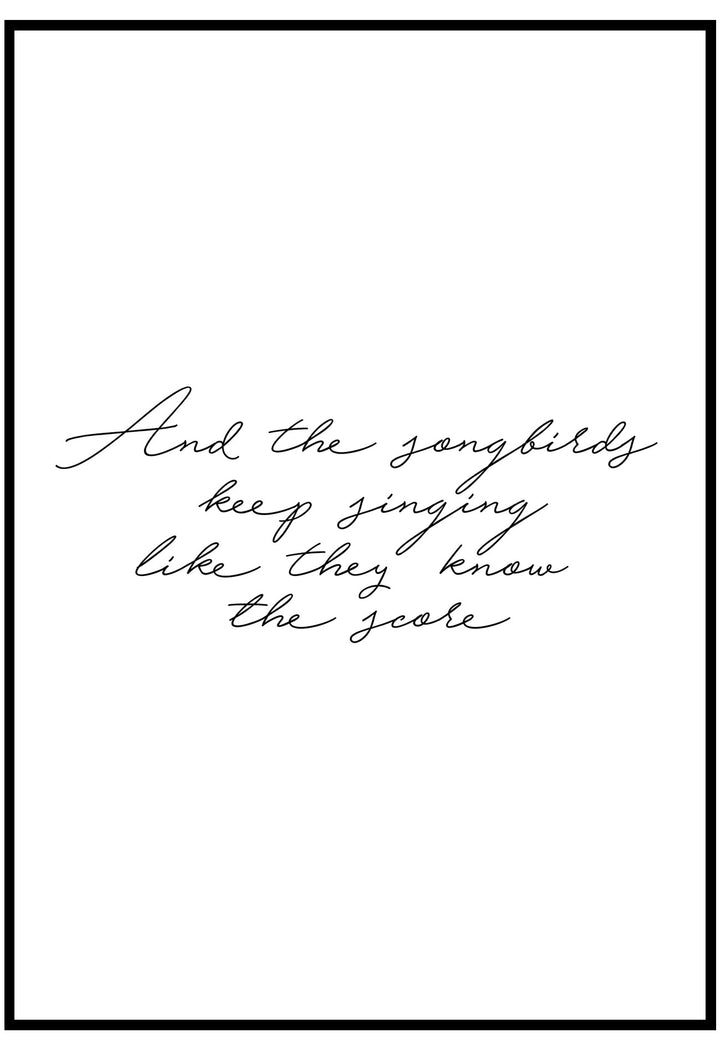 And the songbirds
keep singing
like they know
the score